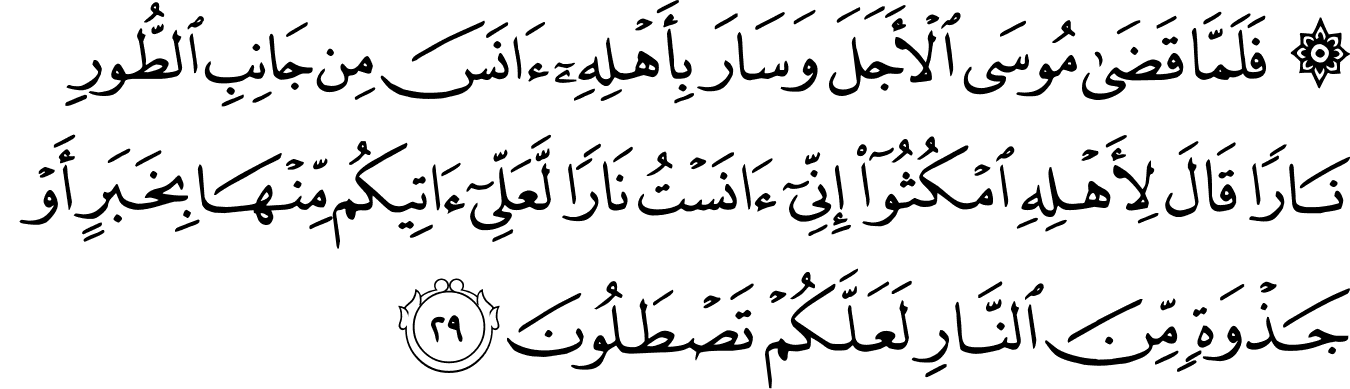 ۞ فَلَمَّا قَضَىٰ مُوسَى ٱلْأَجَلَ وَسَارَ بِأَهْلِهِۦٓ ءَانَسَ مِن جَانِبِ ٱلطُّورِ
نَارًا قَالَ لِأَهْلِهِ ٱمْكُثُوٓا۟ إِنِّىٓ ءَانَسْتُ نَارًا لَّعَلِّىٓ ءَاتِيكُم مِّنْهَا بِخَبَرٍ أَوْ
جَذْوَةٍ مِّنَ ٱلنَّارِ لَعَلَّكُمْ تَصْطَلُونَ ٢٩